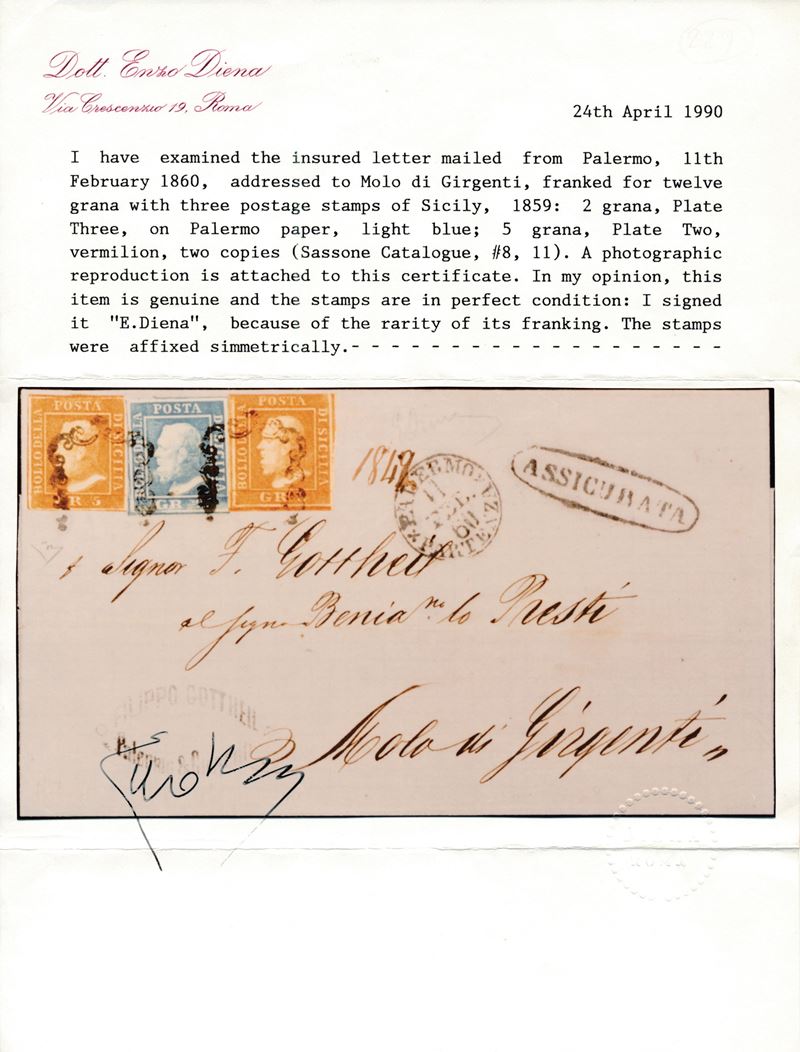 Dott. Enzo Diena
Via Crescenzio 19, Roma
24th April 1990
I have examined the insured letter mailed from Palermo, 11th
February 1860, addressed to Molo di Girgenti, franked for twelve
grana with three postage stamps of Sicily, 1859: 2 grana, Plate
Three, on Palermo paper, light blue; 5 grana, Plate Two,
vermilion, two copies (Sassone Catalogue, #8, 11). A photographic
reproduction is attached to this certificate. In my opinion, this
item is genuine and the stamps are in perfect condition: I signed
it "E.Diena", because of the rarity of its franking. The stamps
were affixed simmetrically.- - - - - - - - - - - - - - - - - - -
BOLLO DELLA POSTA DI SICILIA GR 5
BOLLO DELLA POSTA DI SICILIA GR
BOLLO POSTA DI SICILIA GR
PALERMO
11
FEB.
60
PARTENZA
ASSICURATA
Signor F. Gottheil
al Signr Beniano lo Presti
FILIPPO GOTTHEIL
Molo di Girgenti